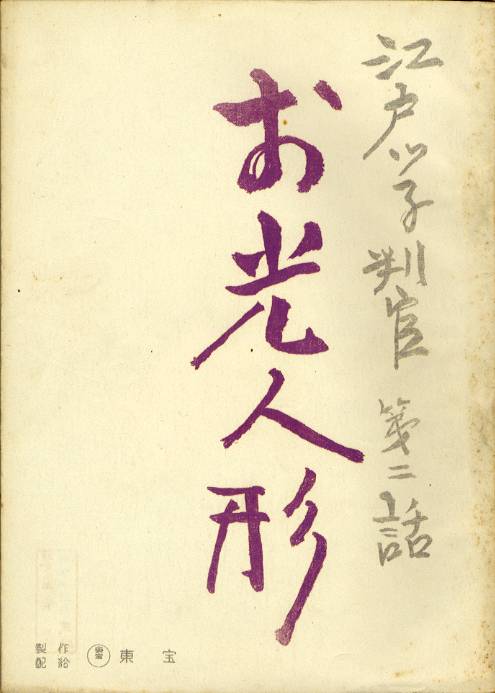 江戸ッ子判官 第二話
お光人形
製作
配給
東宝